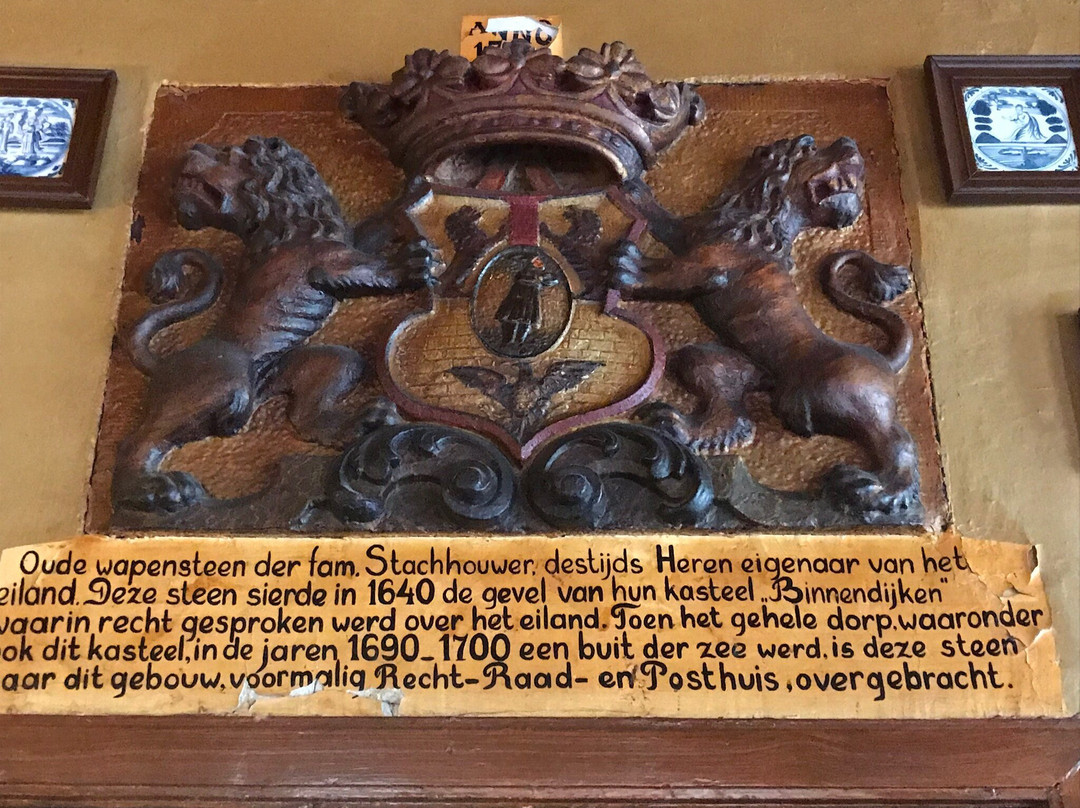 ANNO
Oude wapensteen der fam. Stachhouwer, destijds Heren eigenaar van het
eiland. Deze steen sierde in 1640 de gevel van hun kasteel „Binnendijken"
waarin recht gesproken werd over het eiland. Toen het gehele dorp, waaronder
ook dit kasteel, in de jaren 1690-1700 een buit der zee werd, is deze steen
naar dit gebouw, voormalig Recht-Raad- en Posthuis, overgebracht.